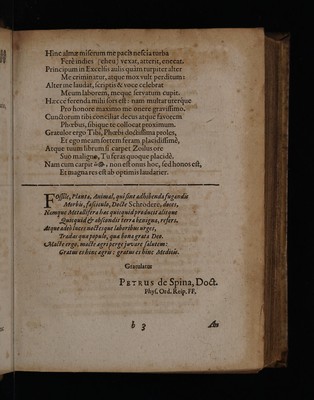 Hinc almæ miserum me pacis nescia turba
Ferè indies (eheu) vexat, atterit, enecat.
Principum in Excelsis aulis quàm turpiter alter
Me criminatur, atque mox vult perditum:
Alter me laudat, scriptis & voce celebrat
Meum laborem, meque servatum cupit.
Hæcce ferenda mihi sors est: nam multat uterque
Pro honore maximo me onere gravissimo.
Cunctorum tibi conciliat decus atque favorem
Phœbus, sibique te collocat proximum.
Gratulor ergo Tibi, Phœbi doctissima proles,
Et ego meam sortem feram placidissimè,
Atque tuum librum si carpet Zoilus ore
Suo maligno, Tu feras quoque placidè.
Nam cum carpit non est onus hoc, sed honos est,
Et magna res est ab optimis laudarier.
Fossile, Planta, Animal, qui sint adhibenda fugandis
Morbis, fasciculo, Docte Schrodere, doces,
Namque Metallifera hæc quicquid producit alitque
Quicquid & abscondit terra benigna, refers.
Atque adeò luces noctesque laboribus urges,
Tradas quo populo, qua bona grata Deo.
Macte ergo, macte agris perge juvare salutem:
Gratus es hinc ægris: gratus es hinc Medicis.
Gratulatur
PETRUS de Spina, Doct.
Phys. Ord. Reip. FF.
b 3